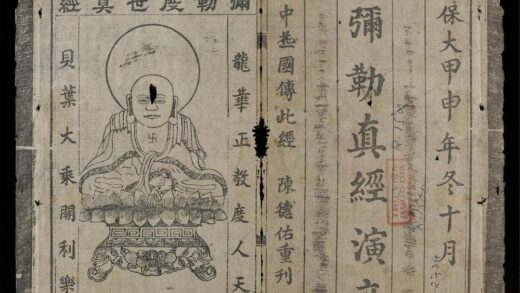 保大甲申年冬十月
彌勒真經演音
中華國傳此經 陳德佑重刊
彌勒度世真經
龍華正教度人天
貝葉大乘開利樂